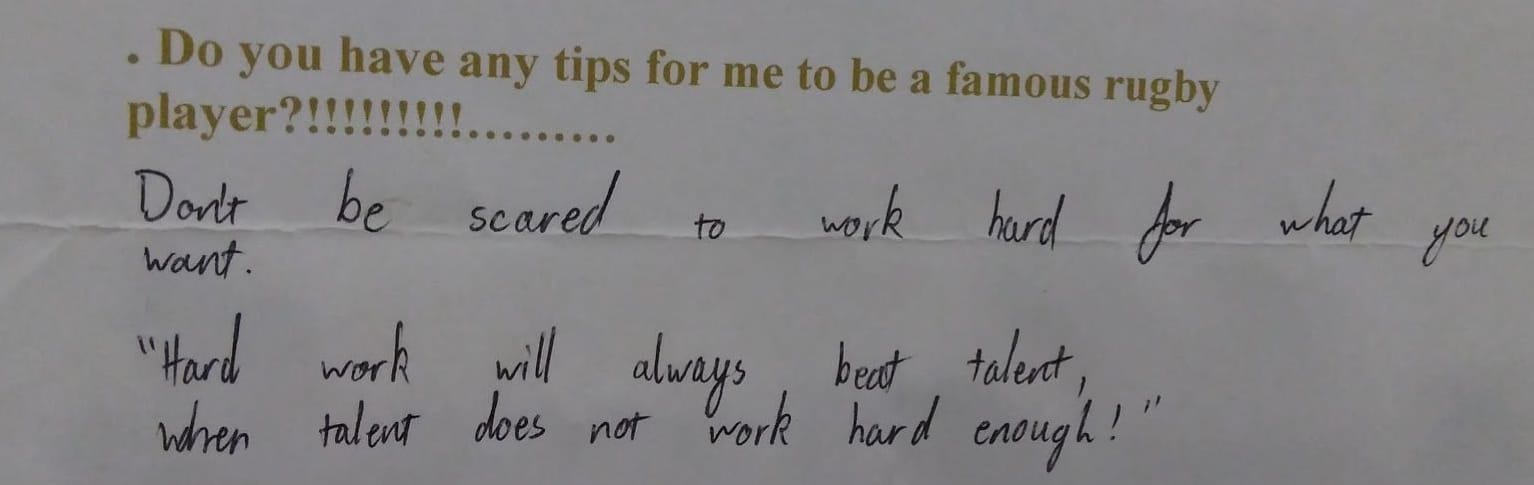 . Do you have any tips for me to be a famous rugby
player?!!!!!!!!!.........
Don't be scared to work hard for what you
want.
"Hard work will always beat talent,
when talent does not work hard enough!"